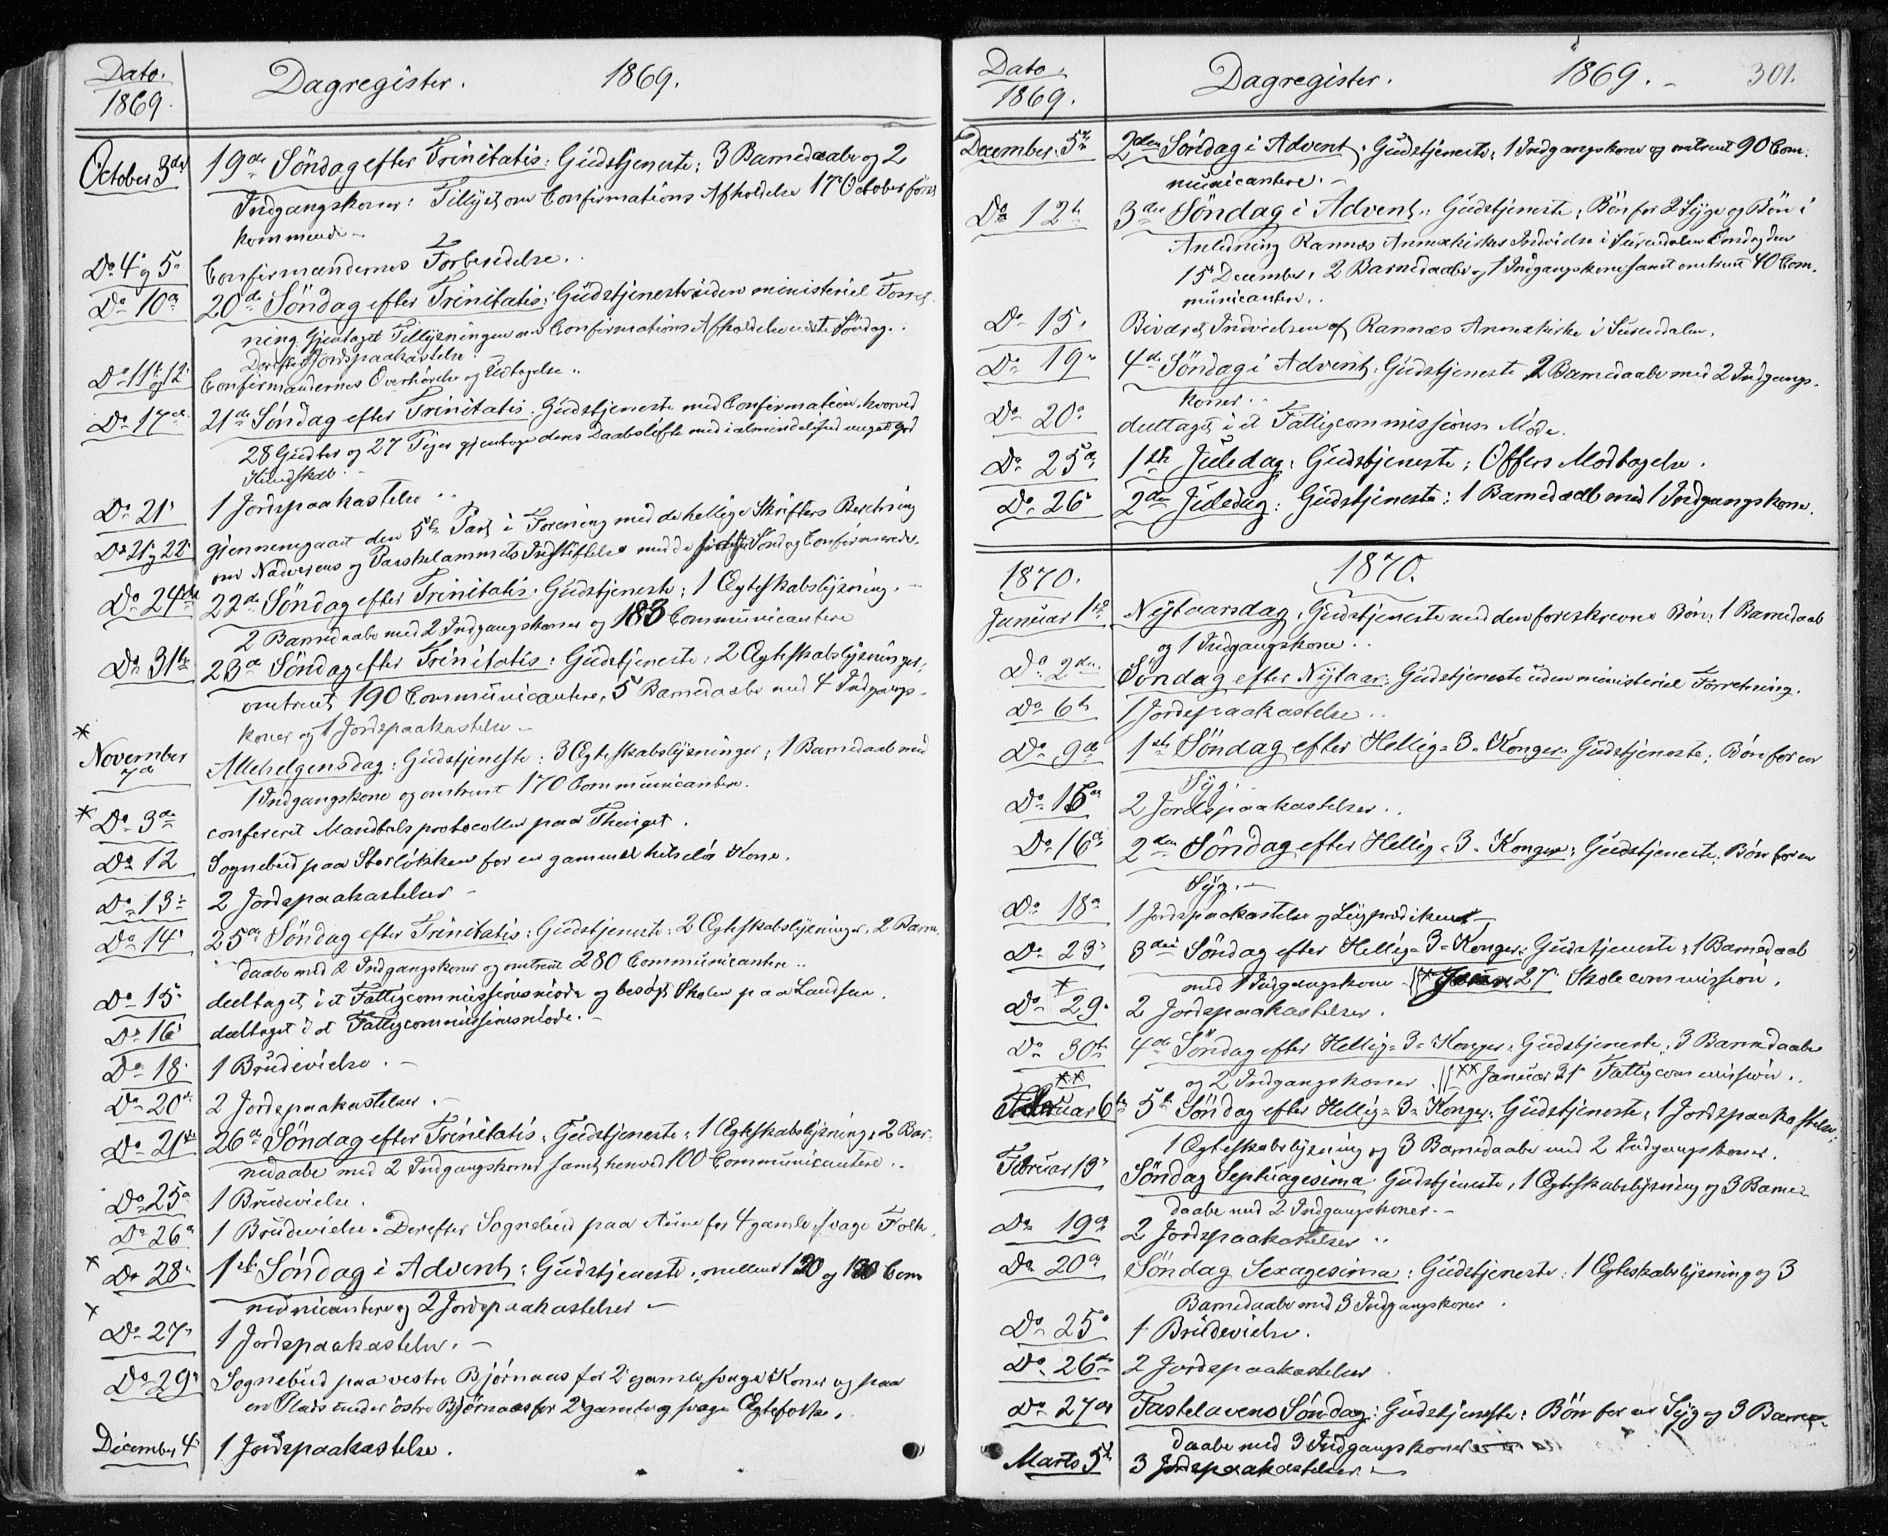 Dato. Dagregister. 1869.
1869.
October 3die 19de Söndag efter Trinitatis: Gudstjeneste; 3 Barnedaabe og 2
Indgangskoner: Tillyst om Confirmations Afholdelse 17 October først
kommende.
Do 4 og 5 Confirmandernes Forberedelse.
Do 10de 20de Söndag efter Trinitatis: Gudstjeneste uden ministeriel Forret-
ning. Gjentaget Tillysningen om Confirmations Afholdelse næste Søndag.
Derefter Jordspaakastelse.
Do 11te og 12 Confirmandernes Overhørelse og Udtagelse.
Do 17de 21de Søndag efter Trinitatis. Gudstjeneste med Confirmation, hvorved
28 Gutter og 27 Piger gjentoge deres Daabsløfte med i almindelighed meget god
Kundskab.
Do 21 1 Jordspaakastelse
Do 21 og 22 gjennemgaaet den 5te Part i Forening med de hellige Skrifters Beretning
om Nadverens og Paaskelammets Indstiftelse med de sidste Søndag Confirmerede.
Do 24de 22de Søndag efter Trinitatis. Gudstjeneste; 1 Ægteskabslysning.
2 Barnedaabe med 2 Indgangskoner og 183 Communicantere
Do 31te 23de Søndag efter Trinitatis: Gudstjeneste: 2 Ægteskabslysninger,
omtrent 190 Communicantere, 5 Barnedaabe med 4 Indgangs-
koner og 1 Jordspaakastelse
*
November 7de Allehelgensdag: Gudstjeneste: 3 Ægteskabslysninger; 1 Barnedaab med
1 Indgangskone og omtrent 170 Communicantere.
* Do 3de confereret Mandtals protocoller paa Thinget.
Do 12 Sognebud paa Storløkken for en gammel helseløs Kone.
Do 13 2 Jordspaakastelser
Do 14 25de Søndag efter Trinitatis: Gudstjeneste: 2 Ægteskabslysninger, 2 Barne-
daabe med 2 Indgangskoner og omtrent 280 Communicantere.
Do 15 deeltaget i et Fattigcommissionsmøde og besøgt Skolen paa Landsem.
Do 16 deeltaget i et Fattigcommissionsmøde.
Do 18 1 Brudevielse.
Do 20de 2 Jordspaakastelser.
Do 21de 26de Søndag efter Trinitatis: Gudstjeneste: 1 Ægteskabslysning, 2 Bar-
nedaabe med 2 Indgangskoner samt henved 100 Communicantere.
Do 25de 1 Brudevielse.
Do 26de 1 Brudevielse. Derefter Sognebud paa Aune for 4 gamle svage Folk.
* Do 28 1ste Søndag i Advent: Gudstjeneste, mellem 120 og 130 Com
municantere og 2 Jordspaakastelser
* Do 27 1 Jordspaakastelse.
Do 29 Sognebud paa vestre Bjørnaas for 2 gamle svage Koner og paa
en Plads under østre Bjørnaas for 2 gamle og svage Ægtefolk.
December 4 1 Jordspaakastelse.
Dato. Dagregister. 1869. 301.
1869.
December 5te 2den Søndag i Advent, Gudstjeneste, 1 Indgangskone og omtrent 90 Com-
municantere.
Do 12te 3die Søndag i Advent: Gudstjeneste, Bøn for 2 Syge og Bøn i
Anledning Rannæs Annexkirkes Indvielse i Surendalen Onsdag den
15de December, 2 Barnedaabe og 1 Indgangskone samt omtrent 40 Com-
municantere.
Do 15 Bivaaret Indvielsen af Rannæs Annexkirke i Surendalen.
Do 19 4de Søndag i Advent; Gudstjeneste 2 Barnedaabe med 2 Indgangs-
koner.
Do 20 deeltaget i et Fattigcommissions Møde.
Do 25de 1ste Juledag: Gudstjeneste; Offers Modtagelse.
Do 26 2den Juledag: Gudstjeneste: 1 Barnedaab med 1 Indgangskone.
1870. 1870.
Januar 1ste Nytaarsdag; Gudstjeneste med den foreskrevne Bøn; 1 Barnedaab
og 1 Indgangskone.
Do 2den Søndag efter Nytaar: Gudstjeneste uden ministeriel Forretning.
Do 6te 1 Jordspaakastelse.
Do 9de 1ste Søndag efter Hellig-3-Konger: Gudstjeneste; Bøn for en
Syg.
Do 15de 2 Jordspaakastelser.
Do 16de 2den Søndag efter Hellig-3-Konger; Gudstjeneste, Bøn for en
Syg.
Do 18de 1 Jordspaakastelse og Ligprædiken
Do 23 3die Søndag efter Hellig-3-Konger: Gudstjeneste, 1 Barnedaab
med 1 Indgangskone * Januar 27 Skolecommission.
*
Do 29 2 Jordspaakastelser.
Do 30te 4de Søndag efter Hellig-3-Konger, Gudstjeneste; 3 Barnedaabe
og 2 Indgangskoner ** Januar 31 Fattigcommission.
**
Februar 6te 5te Søndag efter Hellig-3-Konger: Gudstjeneste, 1 Jordspaakastelse,
1 Ægteskabslysning og 3 Barnedaabe med 2 Indgangskoner.
Februar 13 Søndag Septuagesima Gudstjeneste, 1 Ægteskabslysning og 3 Barne-
daabe med 2 Indgangskoner.
Do 19de 2 Jordspaakastelser
Do 20de Søndag Sexagesima: Gudstjeneste: 1 Ægteskabslysning og 3
Barnedaabe med 3 Indgangskoner.
Do 25de 1 Brudevielse.
Do 26de 2 Jordspaakastelser
Do 27de Fastelavens Søndag: Gudstjeneste: Bøn for en Syg og 3 Barne-
daabe med 3 Indgangskoner
Marts 5te 3 Jordspaakastelser